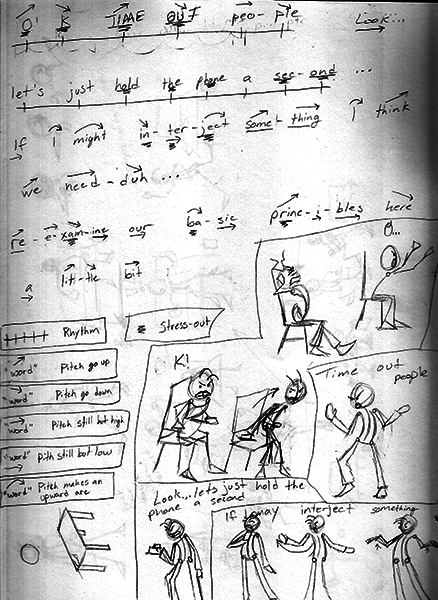 O' K TIME OUT peo-ple Look...
let's just hold the phone a sec-ond ...
If I might in-ter-ject some-thing I think
we need-duh ...
re-e-xam-ine our ba-sic princ-i-bles here
a litt-tle bit
Rhythm
Stress-out
"word" Pitch go up
"word" Pitch go down
"word" Pitch still but high
"word" Pith still but low
"word" Pitch makes an
upward arc
O...
K!
Time out
people
Look...lets just hold the
phone a second
If I may interject something